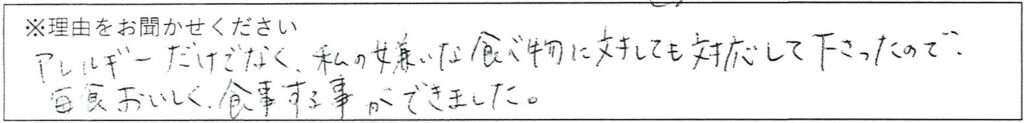 ※理由をお聞かせください
アレルギーだけでなく、私の嫌いな食べ物に対しても対応して下さったので、
毎食おいしく、食事する事ができました。